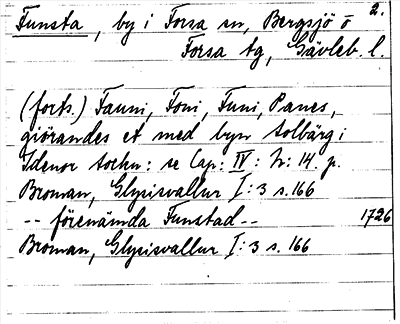 2.
Funsta, by i Forsa sn, Bergsjö o
Forsa tg, Gävleb. l.
(forts.) Fauni, Foni, Funi, Panes,
giörandes et med byn tolbärg i
Idenor sochn: se Cap: IV: N: 14. p.
Broman, Glysisvallur I: 3 s. 166
-- förenämda Funstad -- 1726
Broman, Glysisvallur I: 3 s. 166